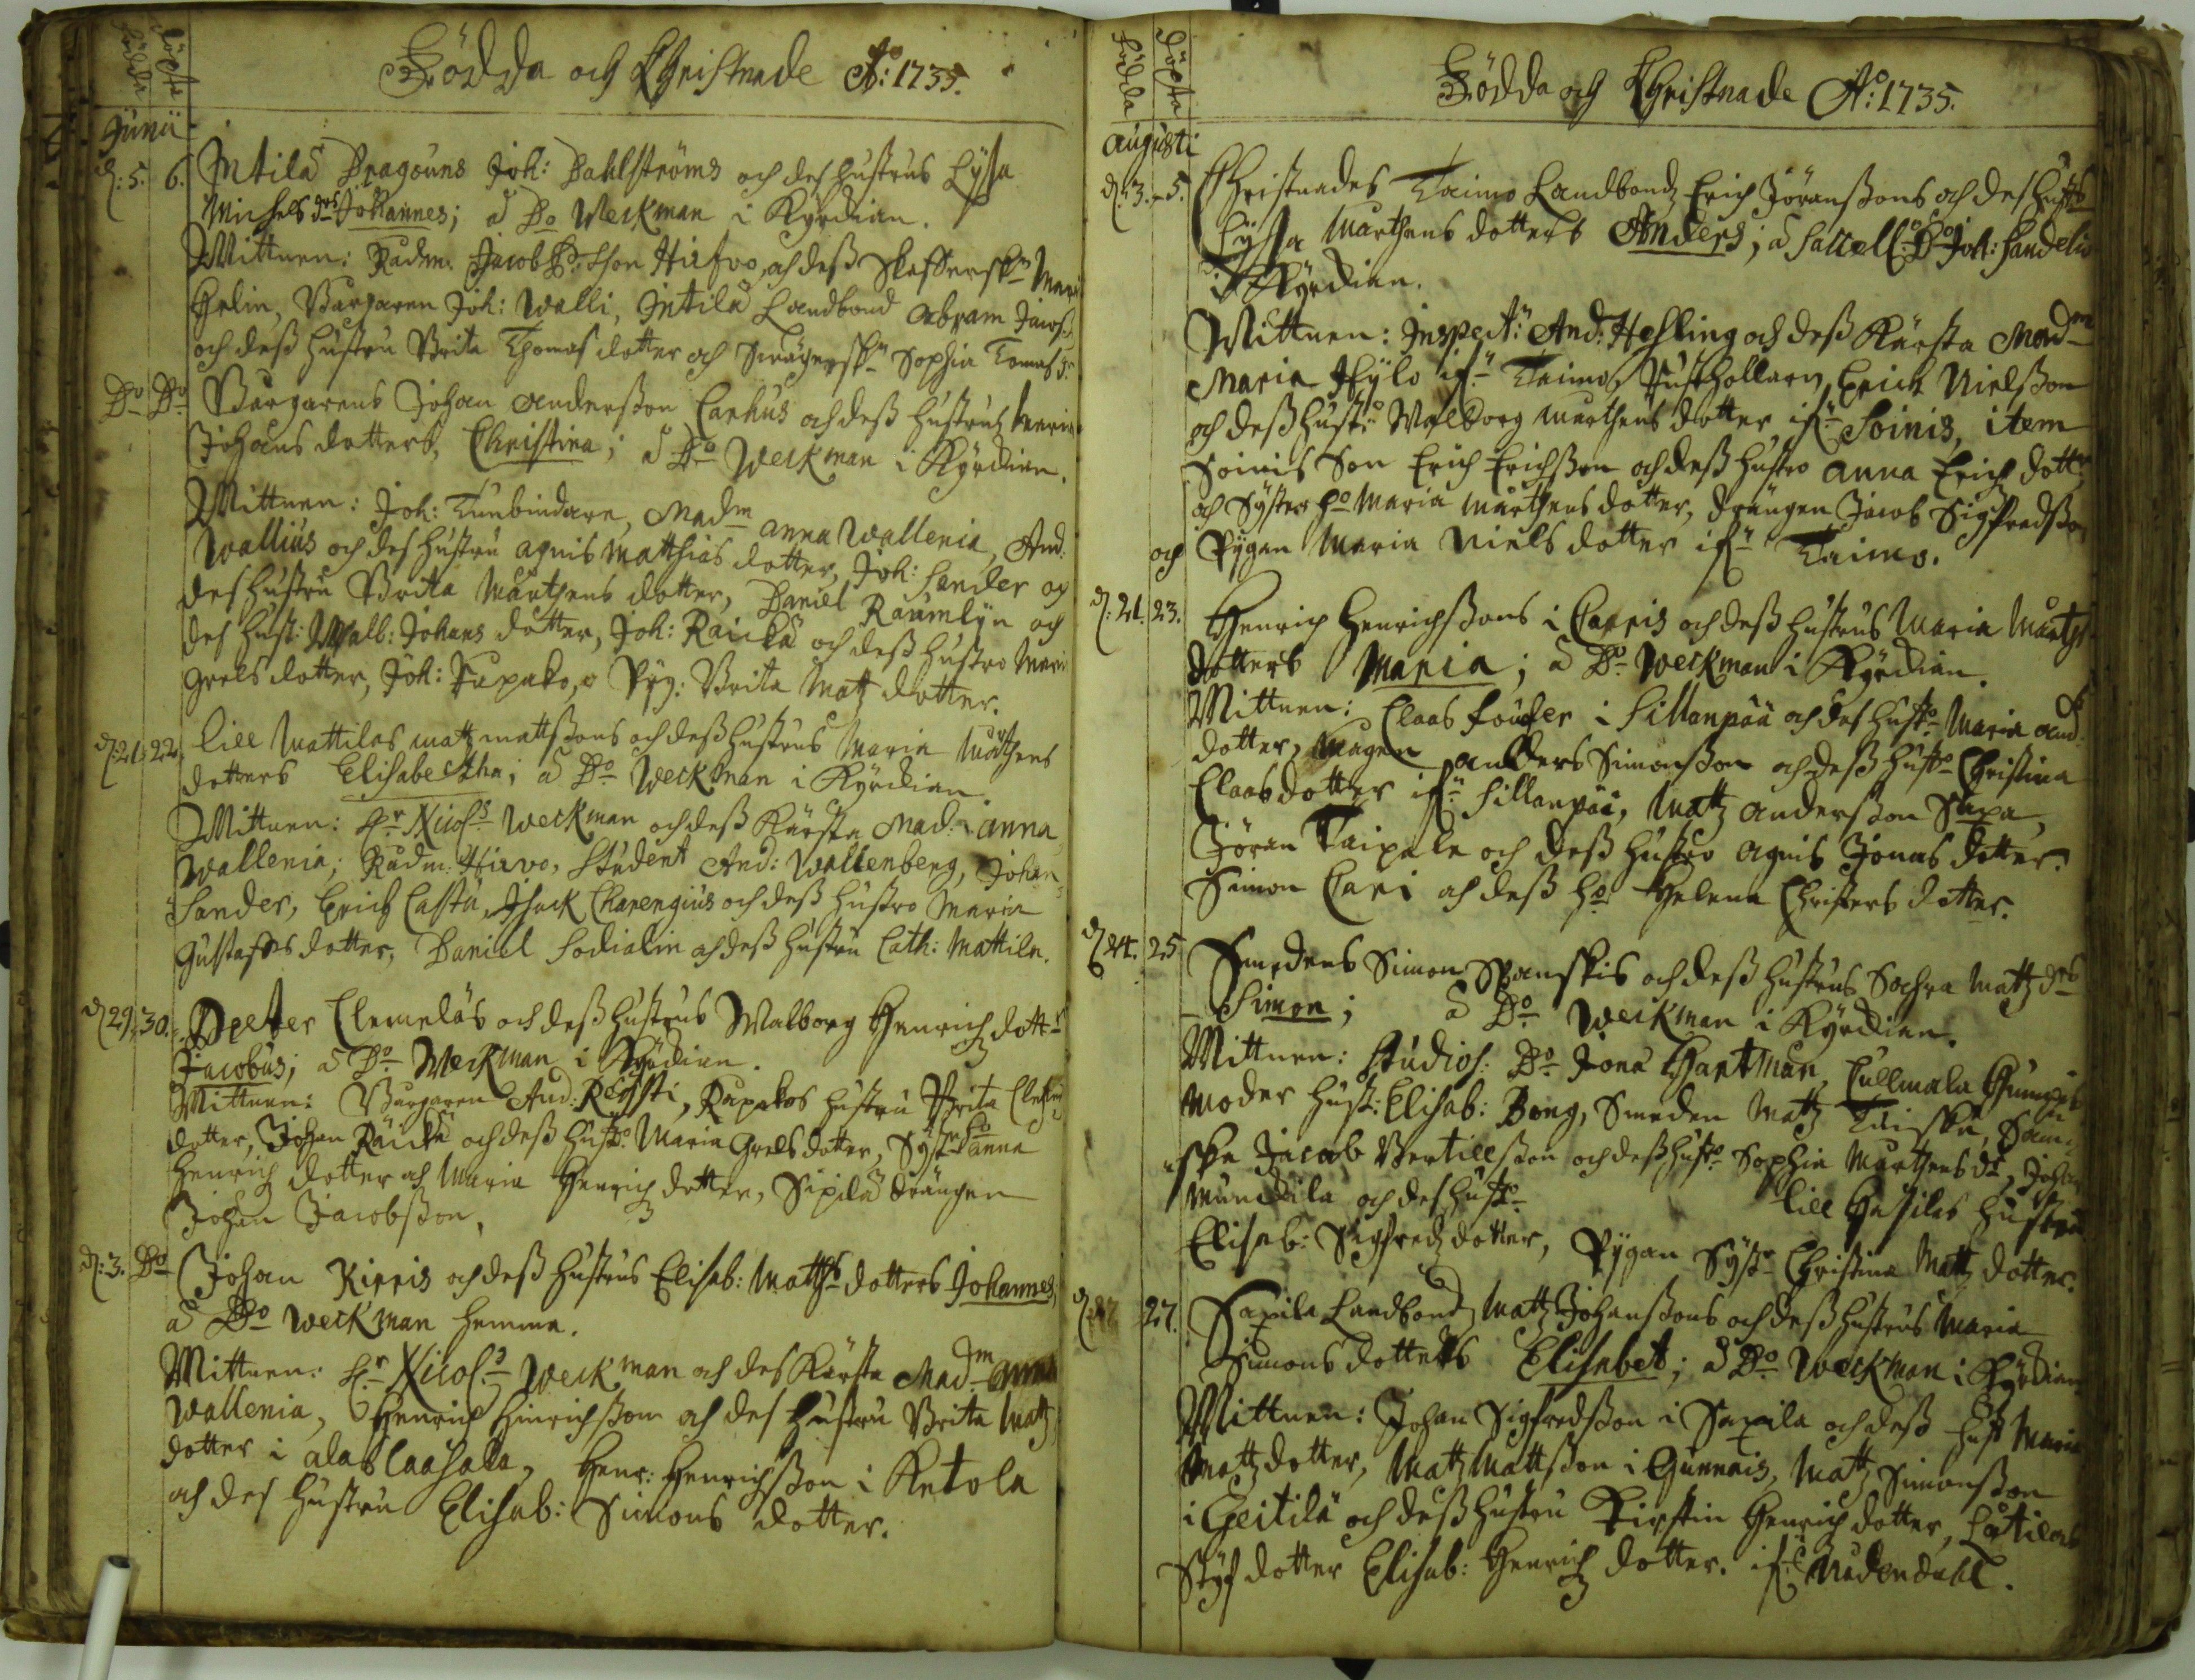 födda döpta
Födda och Christnade Aº: 1735.
Junii
d: 5. 6. Intila Dragouns Joh: Dahlströms och des hustrus Lysa
Michels drs Johannes; à Dº Weckman i Kyrckian.
Wittnen: Radm. Jacob Hirfvo, och dess
Helin, Borgaren Joh: Walli, Intila Landbond Abram Jacobs:
och dess hustru Brita Thomas dotter och Sophia Tomas dr
Dº Dº Borgarens Johan Andersson Carhus och dess hustrus Maria
Johans dotters, Christina; à Dº Weckman i Kyrckian.
Wittnen: Joh: Tunbindare, Madm Anna Wallenia, And:
Wallius och des hustru Agnis Matthias dotter, Joh: Sander och
des hustru Brita Mårthens dotter, Daniel Raumlyn och
des hust: Walb: Johans dotter, Joh: Raicka och dess hustro Mari
Grels dotter, Joh: Papako, o Pyg: Brita Matz dotter.
d: 21. 22. Lill Mattilas Matz Mattssons och dess hustrus Maria Mårthens
dotters Elisabectha; à Dº Weckman i Kyrckian.
Wittnen: Hr Nicols Weckman och dess Kärsta Mad: Anna
Wallenia; Radm: Hirvo, Student And: Wallenberg, Johan
Sander, Erich Castu, Isack Charengius och dess hustro Maria
Gustafs dotter, Daniel Sodialin och dess hustru Cath: Mattiln.
d 29. 30. Peter Clemelas och dess hustrus Walborg Henrichs dottrs
Jacobus; à Dº Weckman i Kyrckian.
Wittnen: Borgaren And: Reysti, Papakos hustru Brita Clemetz
dotter, Johan Räicka och dess hustro Maria Grels dotter, Systr Hº Anna
Henrichs dotter och Maria Henrichs dotter, Sipila drängen
Johan Jacobsson.
d: 3. Dº Johan Kirris och dess hustrus Elisab: Matths dotters Johannes,
à Dº Weckman hemma.
Wittnen: Hr Nicols Weckman och des Kärsta Madm Anna
Wallenia, Henrich Hinrichsson och des hustru Brita Matz
dotter i Alas Caasala, Henr: Henrichsson i Ketola
och des hustru Elisab: Simons dotter.
födda döpta
Födda och Christnade Aº: 1735.
Augusti
d: 3. 5. Christnades Taimo Landbondz Erich Jöranssons och des hustrs
Lysa Mårthens dotters Anders; à Sacell: Dº Joh: Sandelio
i Kyrckian.
Wittnen: Inspect: And: Hesling och dess Kärsta Madm
Maria Hylo ifrn Taimo, Rusthollarn Erich Nielsson
och dess hustru Walborg Mårthens dotter ifrn Soinis, item
Soinis Son Erich Erichsson och dess hustro Anna Erichs dottr
och Syster Hº Maria Mårthens dotter, drängen Jacob Sigfredsson
och Pygan Maria Niels dotter ifrn Taimo.
d: 21. 23. Henrich Henrichssons i Carris och dess hustrus Maria Mårtens
dotters Maria; à Dº Weckman i Kyrckian.
Wittnen: Claas i Sillanpää och des hustro Maria And:
dotter, Magen Anders Simonsson och dess hustro Christina
Claas dotter ifrn Sillanpää, Matz Andersson Saxa,
Jören Taipale och dess hustro Agnis Jonas dotter.
Simon Cari och dess Hº Helena Christers dotter.
d 24. 25 Smedens Simon Spanskis och dess hustrus Sophia Matz drs
Simon; à Dº Weckman i Kyrckian.
Wittnen: Studios: Dº Jona Hartman, Cullmala
Moder Hust: Elisab: Bong, Smeden Matz
Jacob Bertillsson och dess hustro Sophia Mårthens dr, Johan
Munckila och des hustro Lill Hassilas hustru
Elisab: Sigfredz dotter, Pygan Systr Christina Matz dotter.
d: 27. 27. Saxila Landbondz Matz Johanssons och dess hustrus Maria
Simons dotters Elisabet; à Dº Weckman i Kyrckian
Wittnen: Johan Sigfredsson i Saxila och dess hust Maria
Matz dotter, Matz Mattsson i Gunnais, Matz Simonsson
i Heitilä och dess hustru Kirstin Henrichs dotter,
Styf dotter Elisab: Henrichs dotter. ifrn Nådendahl.